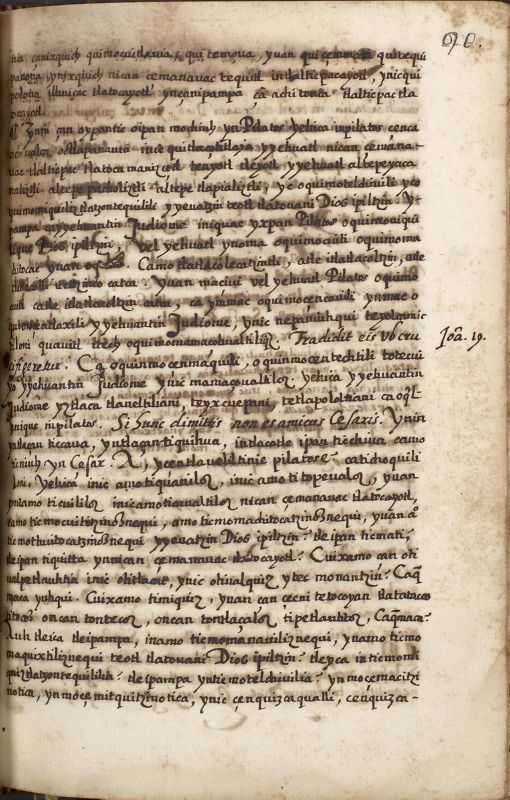 60.
nia canixquich quimocuitlavia, qui temova, yuan qui çemmati quitequi
panoua, ynixquich nican çemanavac tequitl intlalticpacayotl, ynicqui
polotia ilhuicac tlatocayotl yniçanipampa ca achi tonca tlalticpac tla
tocayotl.
¶ Ynin çan oypantic oipan mochiuh yn Pilatos yehica inpilatos cenca
inic quitlaçohtlaya yyehuatl nican cemana-
vac tlalticpac tlatoca maniçotl tenyotl tleyotl yyehuatl altepeyaca
naliztli altepe pacholiztli altepe tlapializtli, yc oquimotelchivili yeo
quimomiquiliztlatzontequilili yyevatzin teotl tlatovani Dios ipiltzin: Yi
pampa cayyehuantin Judiome iniquac yxpan Pilatos oquimoviqui
lique Dios ipiltzin, vel yehuatl ynoma oquimocuiti oquimoma
chitocac yuan Camo tlatlacolecatzintli, atle itlatlacoltzin, atle
catca: Yuan maciui vel yehuatl Pilatos oquimo
cuiti catle itlatlacoltzin catca, ca ynmac oquinocencauili ynmac o
yyehuantin Judiome, ynic nepaniuhqui teyolquix
tiloni quauitl itech oquimomamacohualtilizq̃. Tradidit eis vt cru
cifigeretur. Ca oquinmocenmaquili, o quinmocentechtili totecui
yo yyehuantin Judiome ynic mamaçoualtiloz, yehica yyehuantin
Judiome yztlaca tlaueliltiani, teyxcuepani, tetlapololtiani ca oq̃l-
huique inpilatos. Si hunc dimittis non es amicus Cesaris. Ynin
yntlacan ticcaua, yntlacan tiquihua, intlacatle ipan ticchiua camo
ticniuh yn Cesar. A, ycentlaveliltinie pilatose: catichoquili
loni. Yehica inic amo tiquaniloz, inic amo ti topevaloz, yuan
ynicamo ticuililoz inicamo ticaualtiloz nican çemanavac tlatocayotl,
camo ticmocuititzinoznequi, amo ticmomachitocatzinoznequi, yuan aº
ticmothuitocatzinoznequi yyevatzin Dios ipiltzin: tleipan ticmati,
tleipan tiquitta ynnican çemanavac tlatocayotl: Cuixamo can oti
ualpetlauhtia inic otitlacat, ynic otiualquiz ytec monantzin: Caq̃
maca yuhqui. Cuixamo timiquiz, yuan can çecni tetocoyan tlatataco
titocoz oncan tontecoz, oncan tontlaçaloz tipetlauhtoz, Caq̃maca:
Auh tleica tleipampa, inamo ticmomanaviliznequi, ynamo ticmo
maquixtiliznequi teotl tlatovani Dios ipiltzin: tleyca in ticmomi
quiztlatzontequililia: tleipampa ynticmotelchivilia: yn moçemacitzi
notica, yn moçemitquitzinotica, ynic çenquizcaqualli, cenquizca-
Joã. 19.